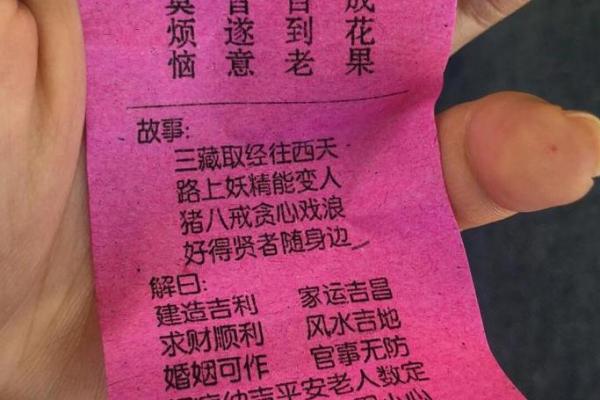 成花果
到老
皆遂意
莫烦恼
故事:
三藏取经往西天
路上妖精能变人
猪八戒贪心戏浪
好得贤者随身边
解曰:
建造吉利 家运吉昌
求财顺利 风水吉地
婚姻可作 官事无防
吉平安老人数定